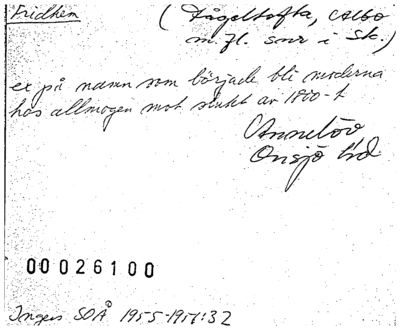 Fridhem (Fågeltofta, Albo
m.fl. snr i Sk.)
ex på namn som började bli moderna
hos allmogen mot slutet av 1800-t
Annelöv
Onsjö hd.
00026100
Ingers SOÅ 1955-1957:32